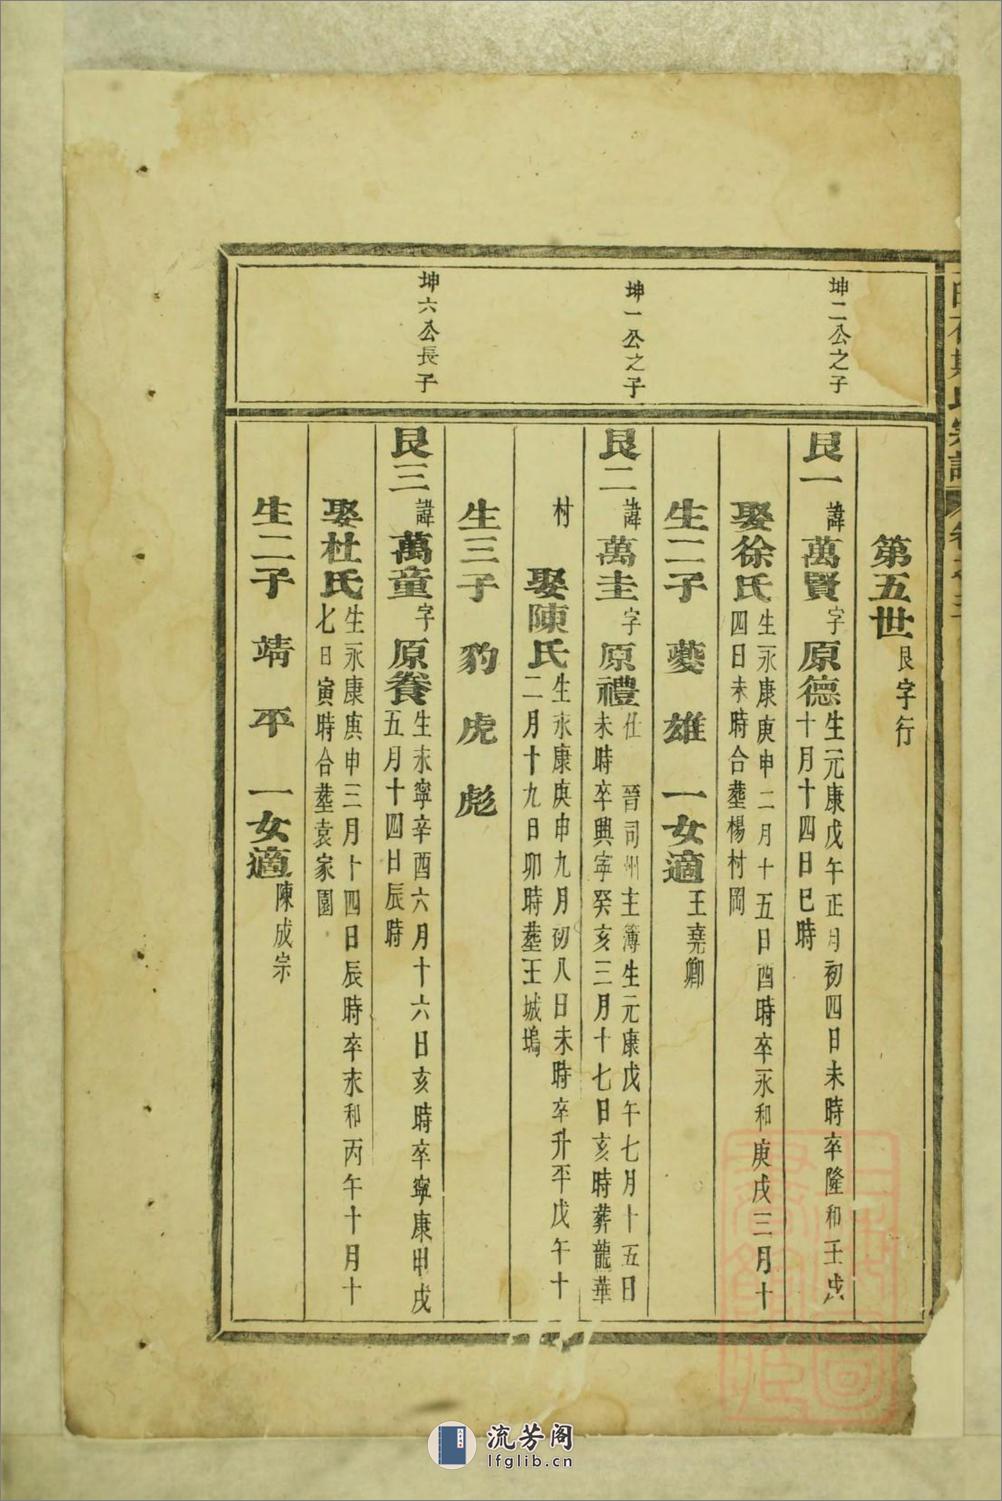 第五世 艮字行
坤二公之子
艮一 諱萬賢 字原德 生元康戊午正月初四日未時卒隆和壬戌
十月十四日巳時
娶徐氏 生永康庚申二月十五日酉時卒永和庚戌三月十
四日未時合塟楊村岡
生二子 夔 雄 一女適王堯卿
坤一公之子
艮二 諱萬圭 字原禮 仕 晉司州主簿生元康戊午七月十五日
未時卒興寧癸亥三月十七日亥時葬龍華
村
娶陳氏 生永康庚申九月初八日未時卒升平戊午十
二月十九日卯時塟王城塢
生三子 豹 虎 彪
坤六公長子
艮三 諱萬童 字原養 生永寧辛酉六月十六日亥時卒寧康甲戌
五月十四日辰時
娶杜氏 生永康庚申三月十四日辰時卒永和丙午十月十
七日寅時合塟袁家園
生二子 靖 平 一女適陳成宗
流芳阁
lfglib.cn